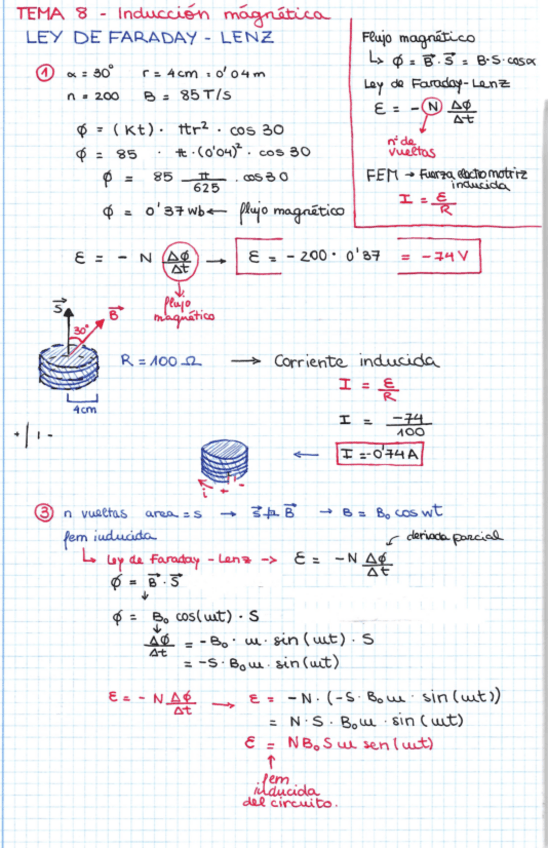 TEMA 8 - Inducción mágnética
LEY DE FARADAY - LENZ
Flujo magnético
↳ ϕ = B⃗ · S⃗ = B·S·cosα
Ley de Faraday-Lenz
ε = - N Δϕ/Δt
nº de vueltas
FEM → Fuerza electromotriz inducida
I = ε/R
① α = 30° r = 4cm = 0'04m
n = 200 B = 85T/s
ϕ = (Kt) · πr² · cos 30
ϕ = 85 · π·(0'04)² · cos 30
ϕ = 85 π/625 · cos 30
ϕ = 0'37 Wb ← flujo magnético
ε = - N Δϕ/Δt → ε = -200 · 0'37 = -74V
flujo magnético
S⃗ B⃗
30°
4cm
R = 100 Ω → Corriente inducida
I = ε/R
I = -74/100
+ | | -
← I = -0'74A
i + -
③ n vueltas area = s → S⃗ ∦ B⃗ → B = B₀ cos wt
fem inducida
derivada parcial
↳ Ley de Faraday - Lenz -> ε = -N Δϕ/Δt
ϕ = B⃗ · S⃗
ϕ = B₀ cos(wt) · S
Δϕ/Δt = -B₀ · w · sin(wt) · S
= -S · B₀w · sin(wt)
ε = - N Δϕ/Δt → ε = -N · (-S · B₀w · sin(wt))
= N · S · B₀w · sin(wt)
ε = N B₀ S w sen(wt)
↑
fem
inducida
del circuito.